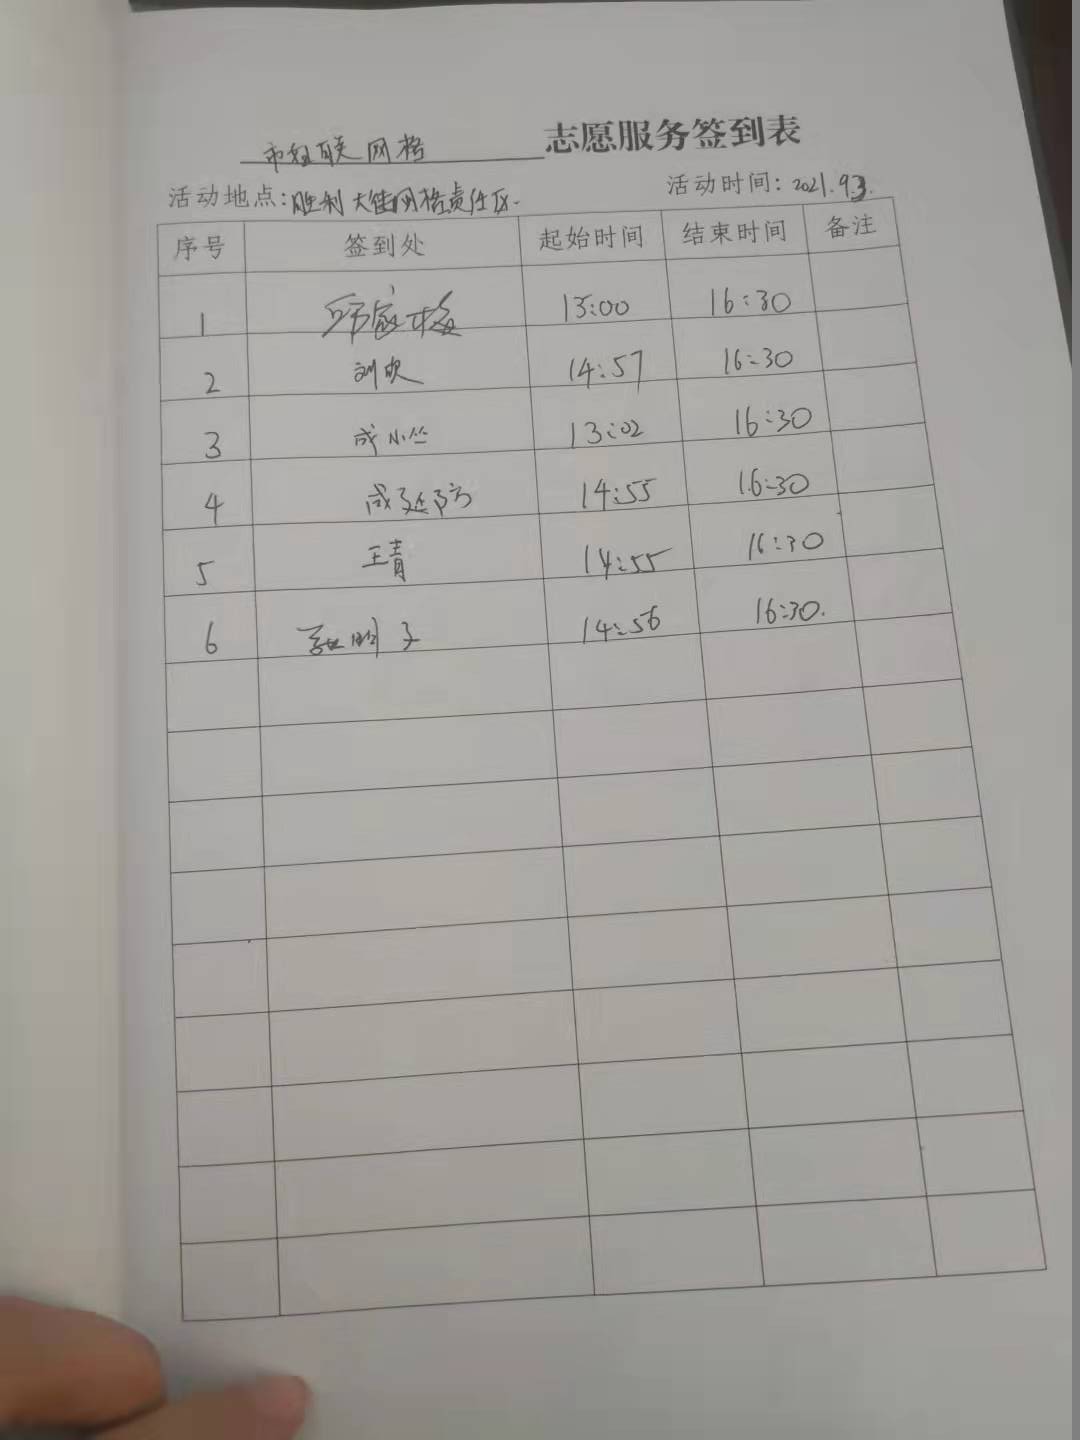 市妇联网格 志愿服务签到表
活动地点:胜利大街网格责任区.
活动时间: 2021.9.3.
序号 签到处 起始时间 结束时间 备注
1 家梅 15:00 16:30
2 刘欢 14:57 16:30
3 成小丛 13:02 16:30
4 成延防 14:55 16:30
5 王青 14:55 16:30
6 明子 14:56 16:30.